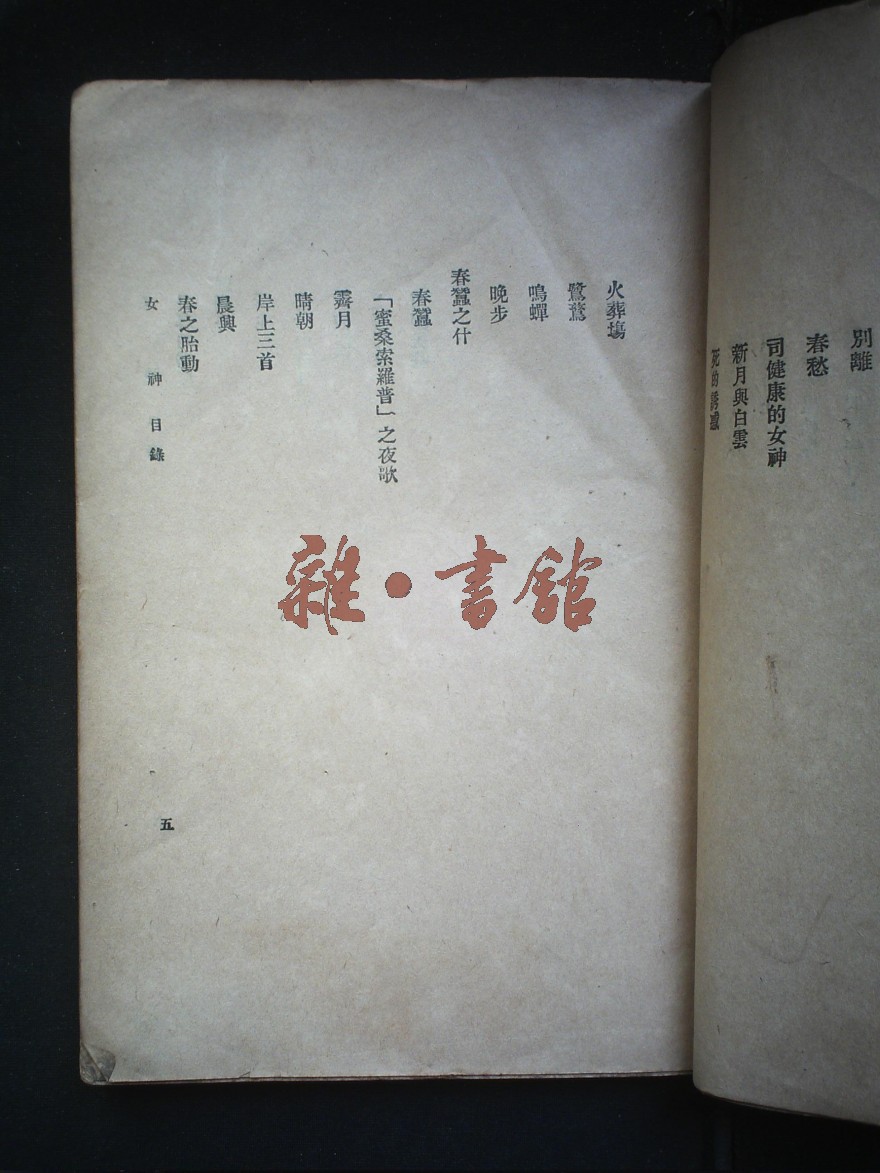 別離
春愁
司健康的女神
新月與白雲
死的誘惑
火葬場
鷺鷥
鳴蟬
晚步
春蠶之什
春蠶
「蜜桑索羅普」之夜歌
霽月
晴朝
岸上三首
晨興
春之胎動
女神目錄
五
雜·書館